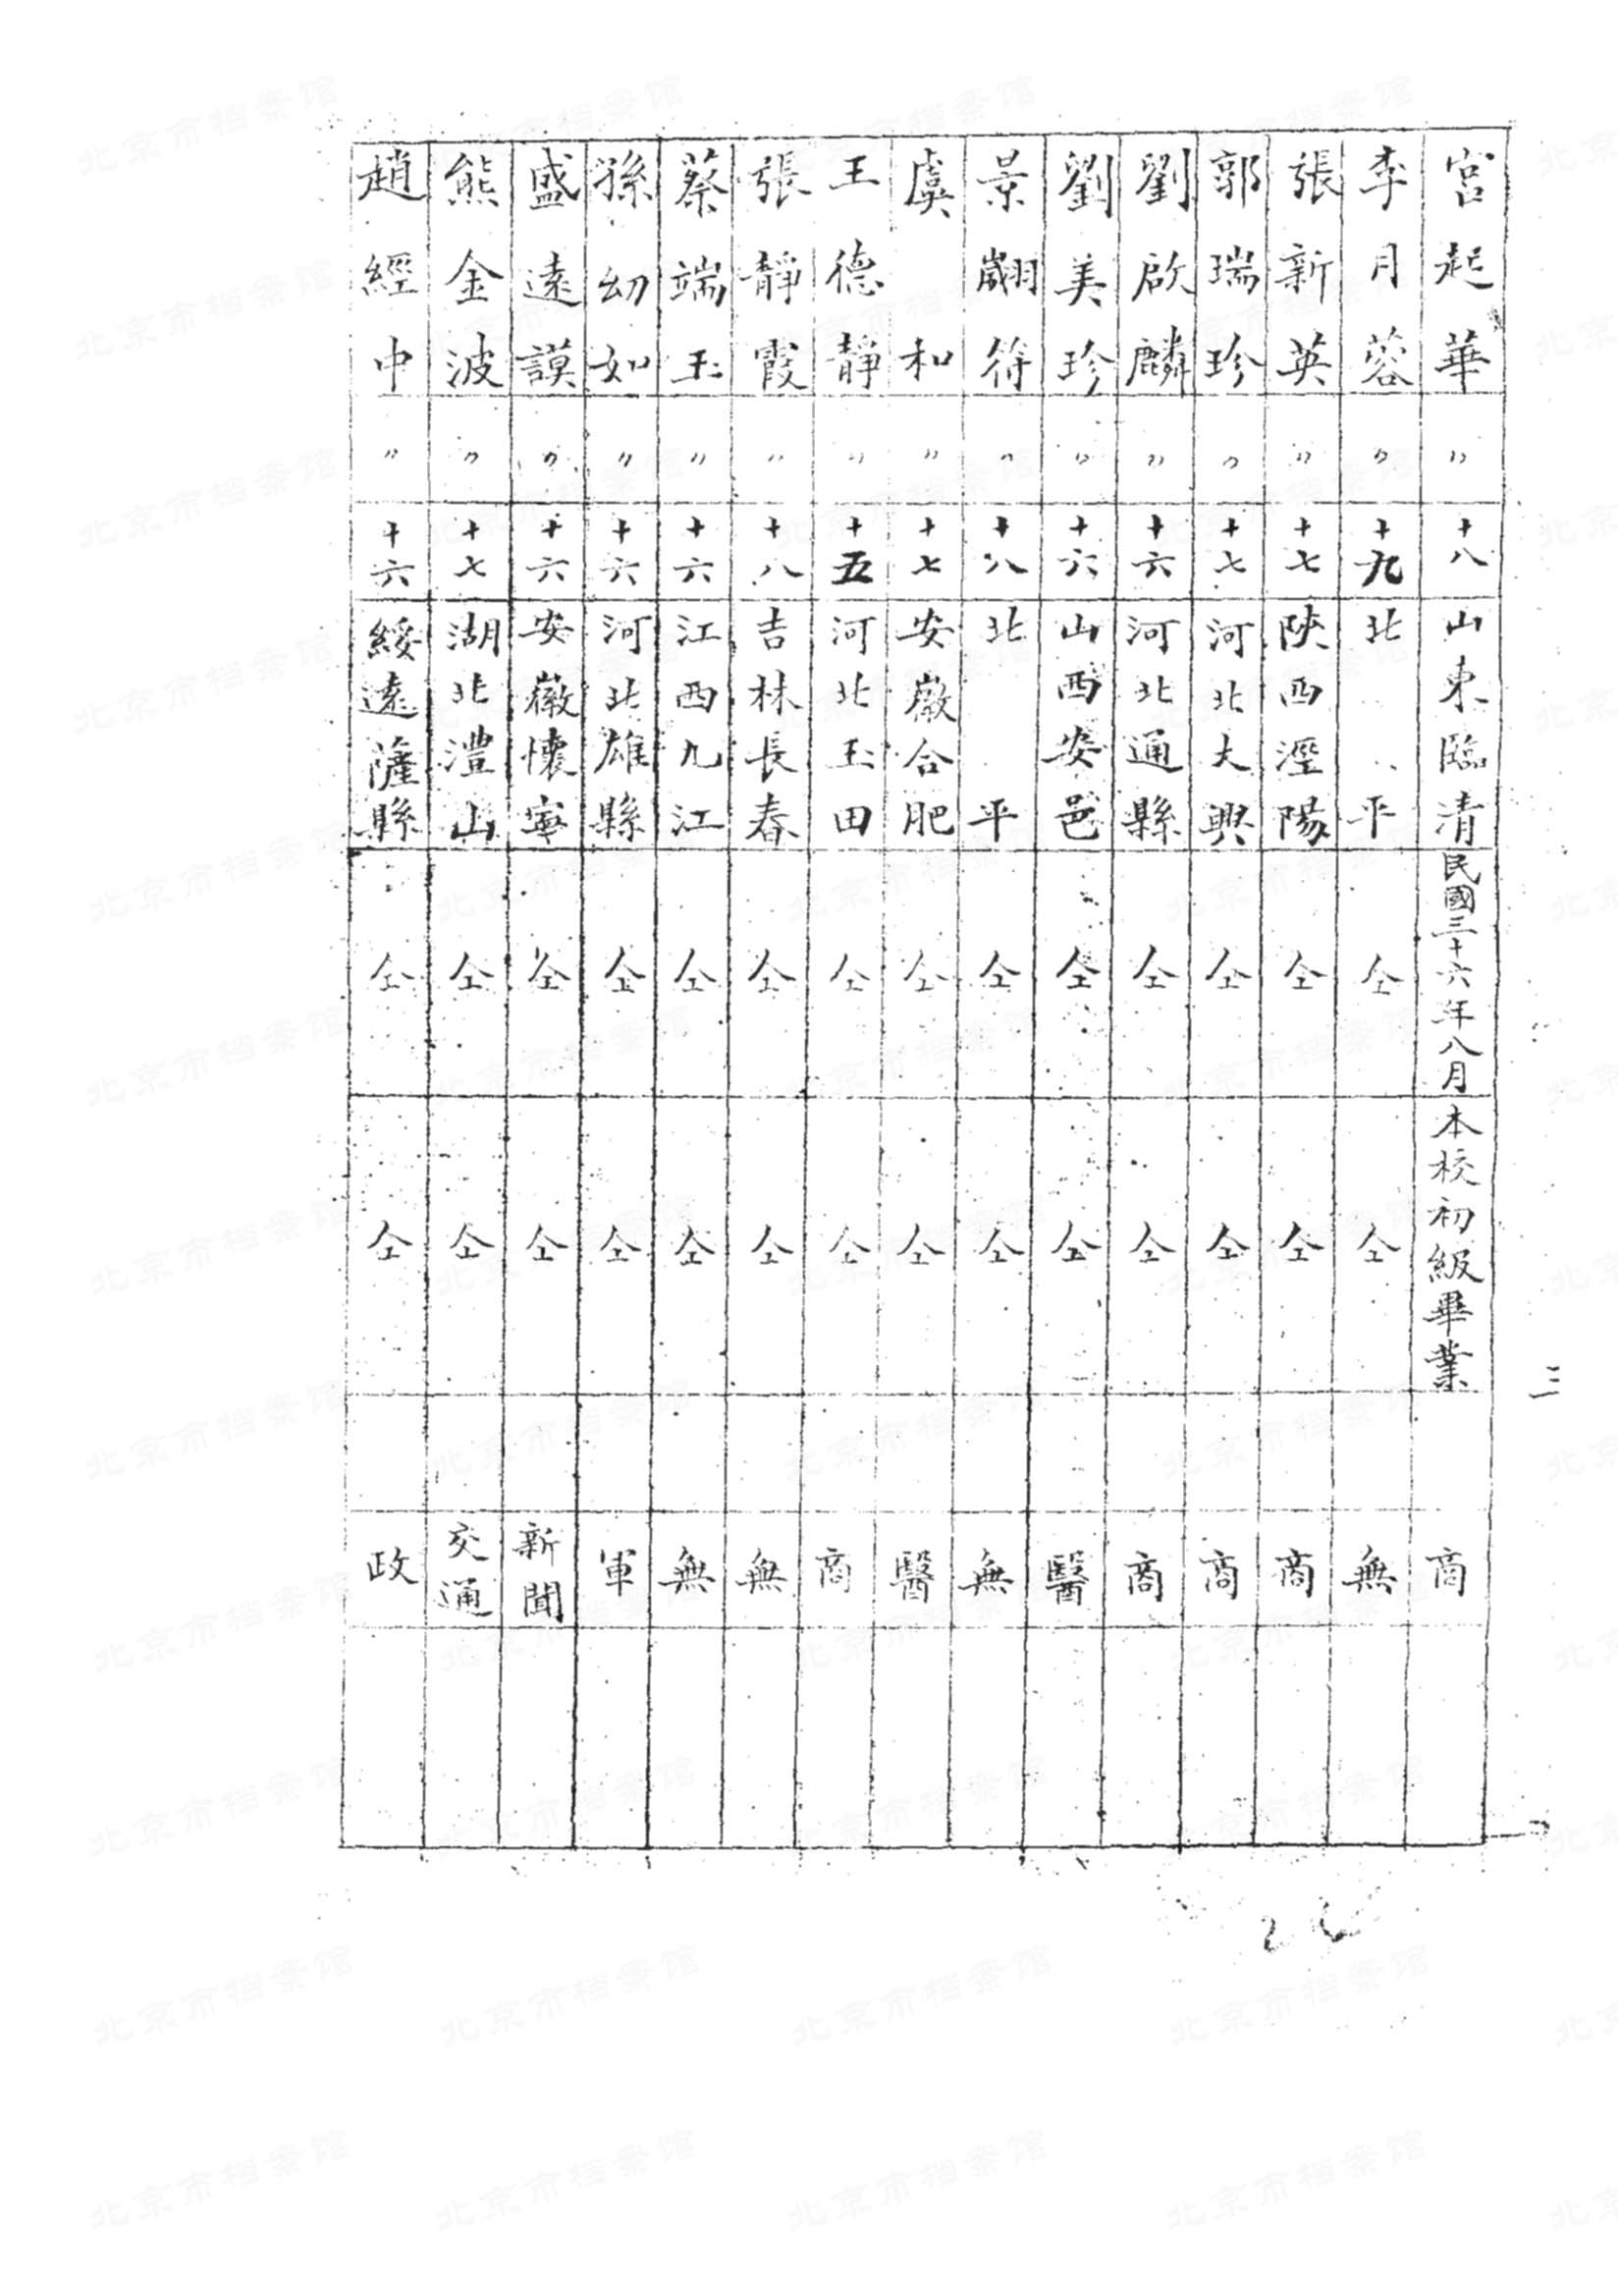 宫起華 〃 十八 山東臨清 民國三十六年八月 本校初級畢業 商
李月蓉 〃 十九 北平 仝 仝 無
張新英 〃 十七 陝西涇陽 仝 仝 商
郭瑞珍 〃 十七 河北大興 仝 仝 商
劉啟麟 〃 十六 河北通縣 仝 仝 商
劉美珍 〃 十六 山西安邑 仝 仝 醫
景翽符 〃 十八 北平 仝 仝 無
虞和 〃 十七 安徽合肥 仝 仝 醫
王德靜 〃 十五 河北玉田 仝 仝 商
張靜霞 〃 十八 吉林長春 仝 仝 無
蔡端玉 〃 十六 江西九江 仝 仝 無
孫幼如 〃 十六 河北雄縣 仝 仝 軍
盛遠謨 〃 十六 安徽懷寧 仝 仝 新聞
熊金波 〃 十七 湖北澧山 仝 仝 交通
趙經中 〃 十六 綏遠薩縣 仝 仝 政
二
北京市档案馆